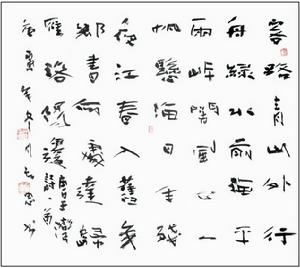 客路青山外行
舟綠水前潮平
兩岸闊風正一
帆懸海日生殘
夜江春入舊年
鄉書何處達歸
雁洛陽邊